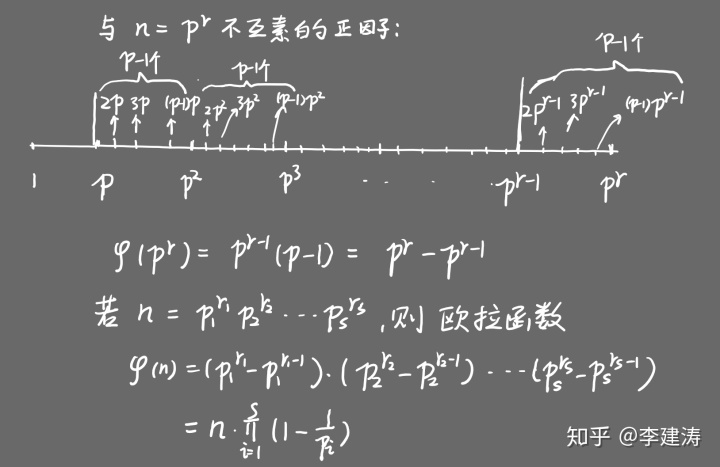 与 n = p^r 不互素的正因子:
p-1个 p-1个 p-1个
2p 3p (p-1)p 2p² 3p² (p-1)p² 2p^{r-1} 3p^{r-1} (p-1)p^{r-1}
1 p p² p³ · · · · p^{r-1} p^r
φ(p^r) = p^{r-1}(p-1) = p^r - p^{r-1}
若 n = p₁^{r₁} p₂^{r₂} ··· p_s^{r_s},则 欧拉函数
φ(n) = (p₁^{r₁} - p₁^{r₁-1}) · (p₂^{r₂} - p₂^{r₂-1}) ··· (p_s^{r_s} - p_s^{r_s-1})
= n · ∏_{i=1}^{s} (1 - 1/p_i)
知乎 @李建涛